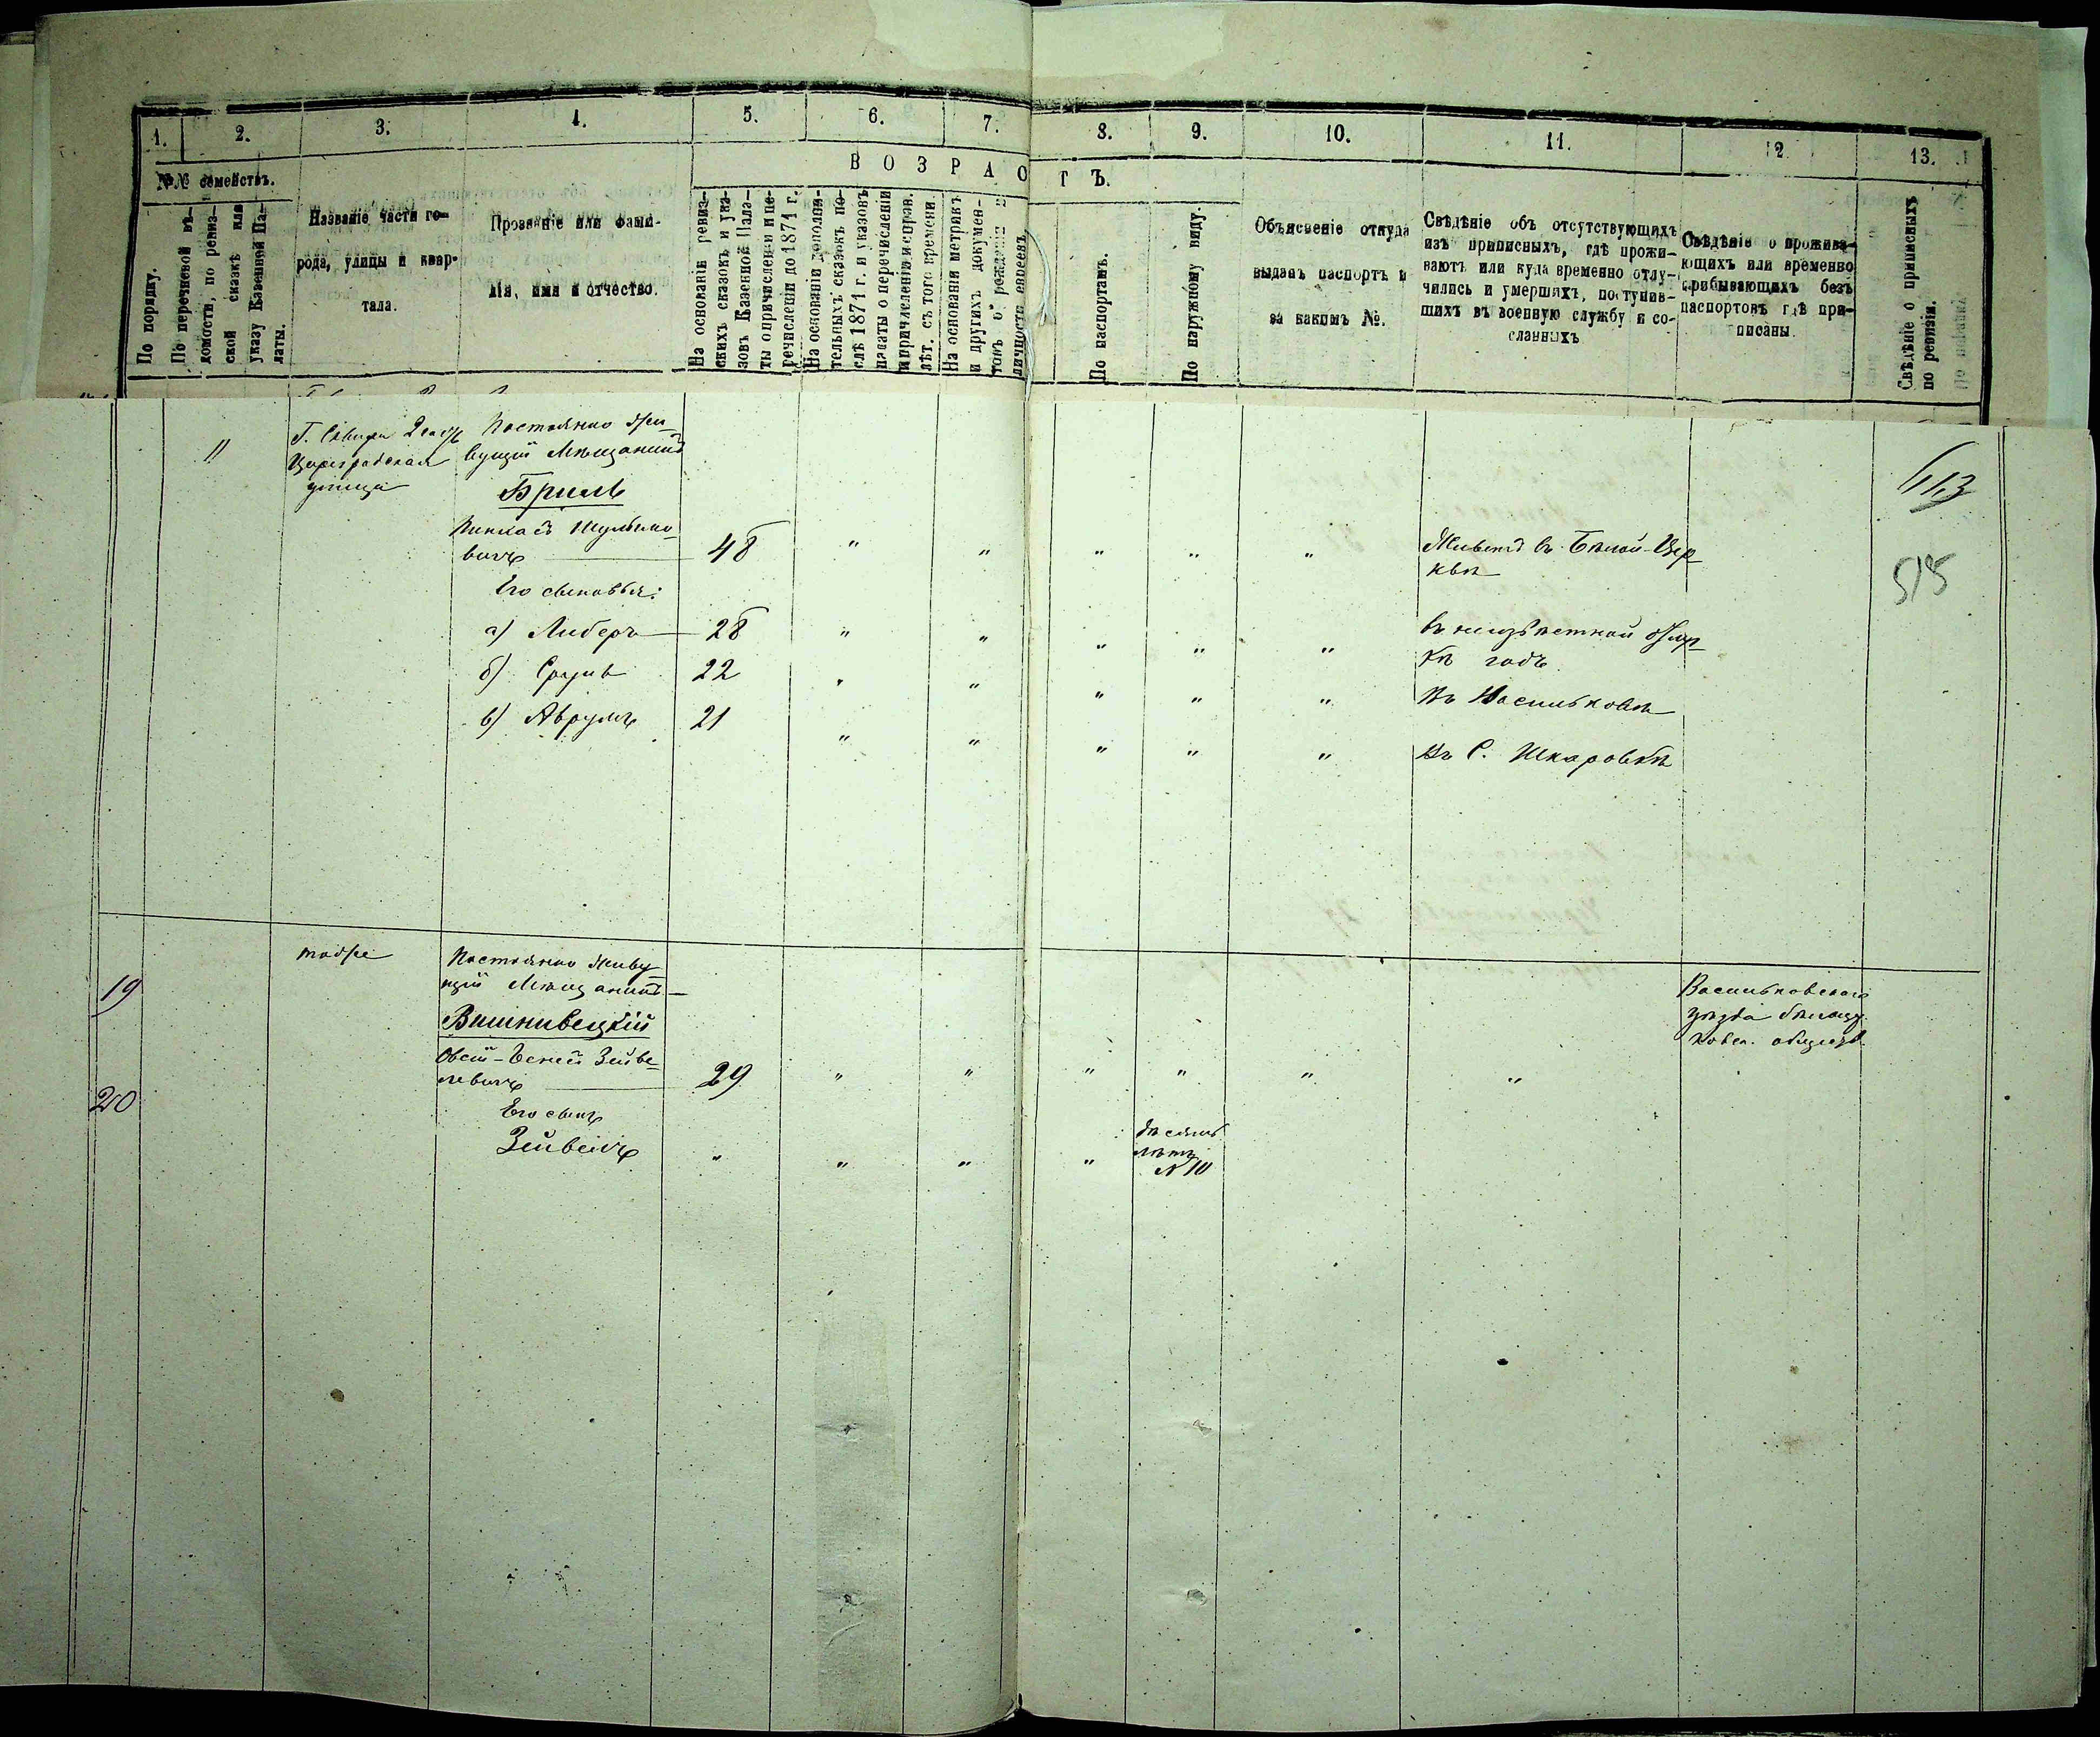 1. 2. 3. 4. 5. 6. 7. 8. 9. 10. 11. 12 13.
ВОЗРАСТЪ.
№№ семействъ.
По порядку.
По перечневой вѣ-
домость, по ревиз-
ской сказкѣ или
указу Казенной Па-
латы.
Названіе части го-
рода, улицы и квар-
тала.
Прозваніе или фами-
лія, имя и отчество.
На основаніи ревиз-
скихъ сказокъ и ука-
зовъ Казенной Пала-
ты о причислени и пе-
речислении до 1871 г.
На основаніи дополни-
тельныхъ сказокъ по-
слѣ 1871 г. и указовъ
палаты о перечисленіи
и причисленіи и справ.
лѣт. съ того времени.
На основаніи метрикъ
и другихъ докумен-
товъ о рожденіи и
личности евреевъ
По паспортамъ.
По наружному виду.
Объясненіе откуда
выданъ паспортъ и
за какимъ №.
Свѣдѣніе объ отсутствующихъ
изъ приписныхъ, гдѣ прожи-
ваютъ или куда временно отлу-
чились и умершихъ, поступив-
шихъ въ военную службу и со-
сланныхъ
Свѣдѣніе о прожива-
ющихъ или временно
прибывающихъ безъ
паспортовъ гдѣ при-
писаны.
Свѣдѣніе о приписныхъ
по ревизіи.
11
Г. Сквира 2 часть
Цареградская
улица
Постоянно жи-
вущій Мѣщанинъ
Бриль
Пинхасъ Шулимо-
вичъ 48 " " " " " Живетъ въ Бѣлой-Цер-
квѣ
Его сыновья:
а) Либеръ 28 " " " " "
кѣ годъ
б) Сруль 22 " " " " " Въ Васильковѣ
в) Аврумъ 21 " " " " " Въ С. Шкаровкѣ
513
515
19
тоже
Постоянно живу-
щій Мѣщанинъ
Вишнивецкій
Овсій-Есней Зейве-
левичъ 29 " " " " " "
Васильковскаго
уѣзда бѣлоцер
ковск. общества
20
Его сынъ
Зейвель " " " "
десять
лѣтъ
№ 10